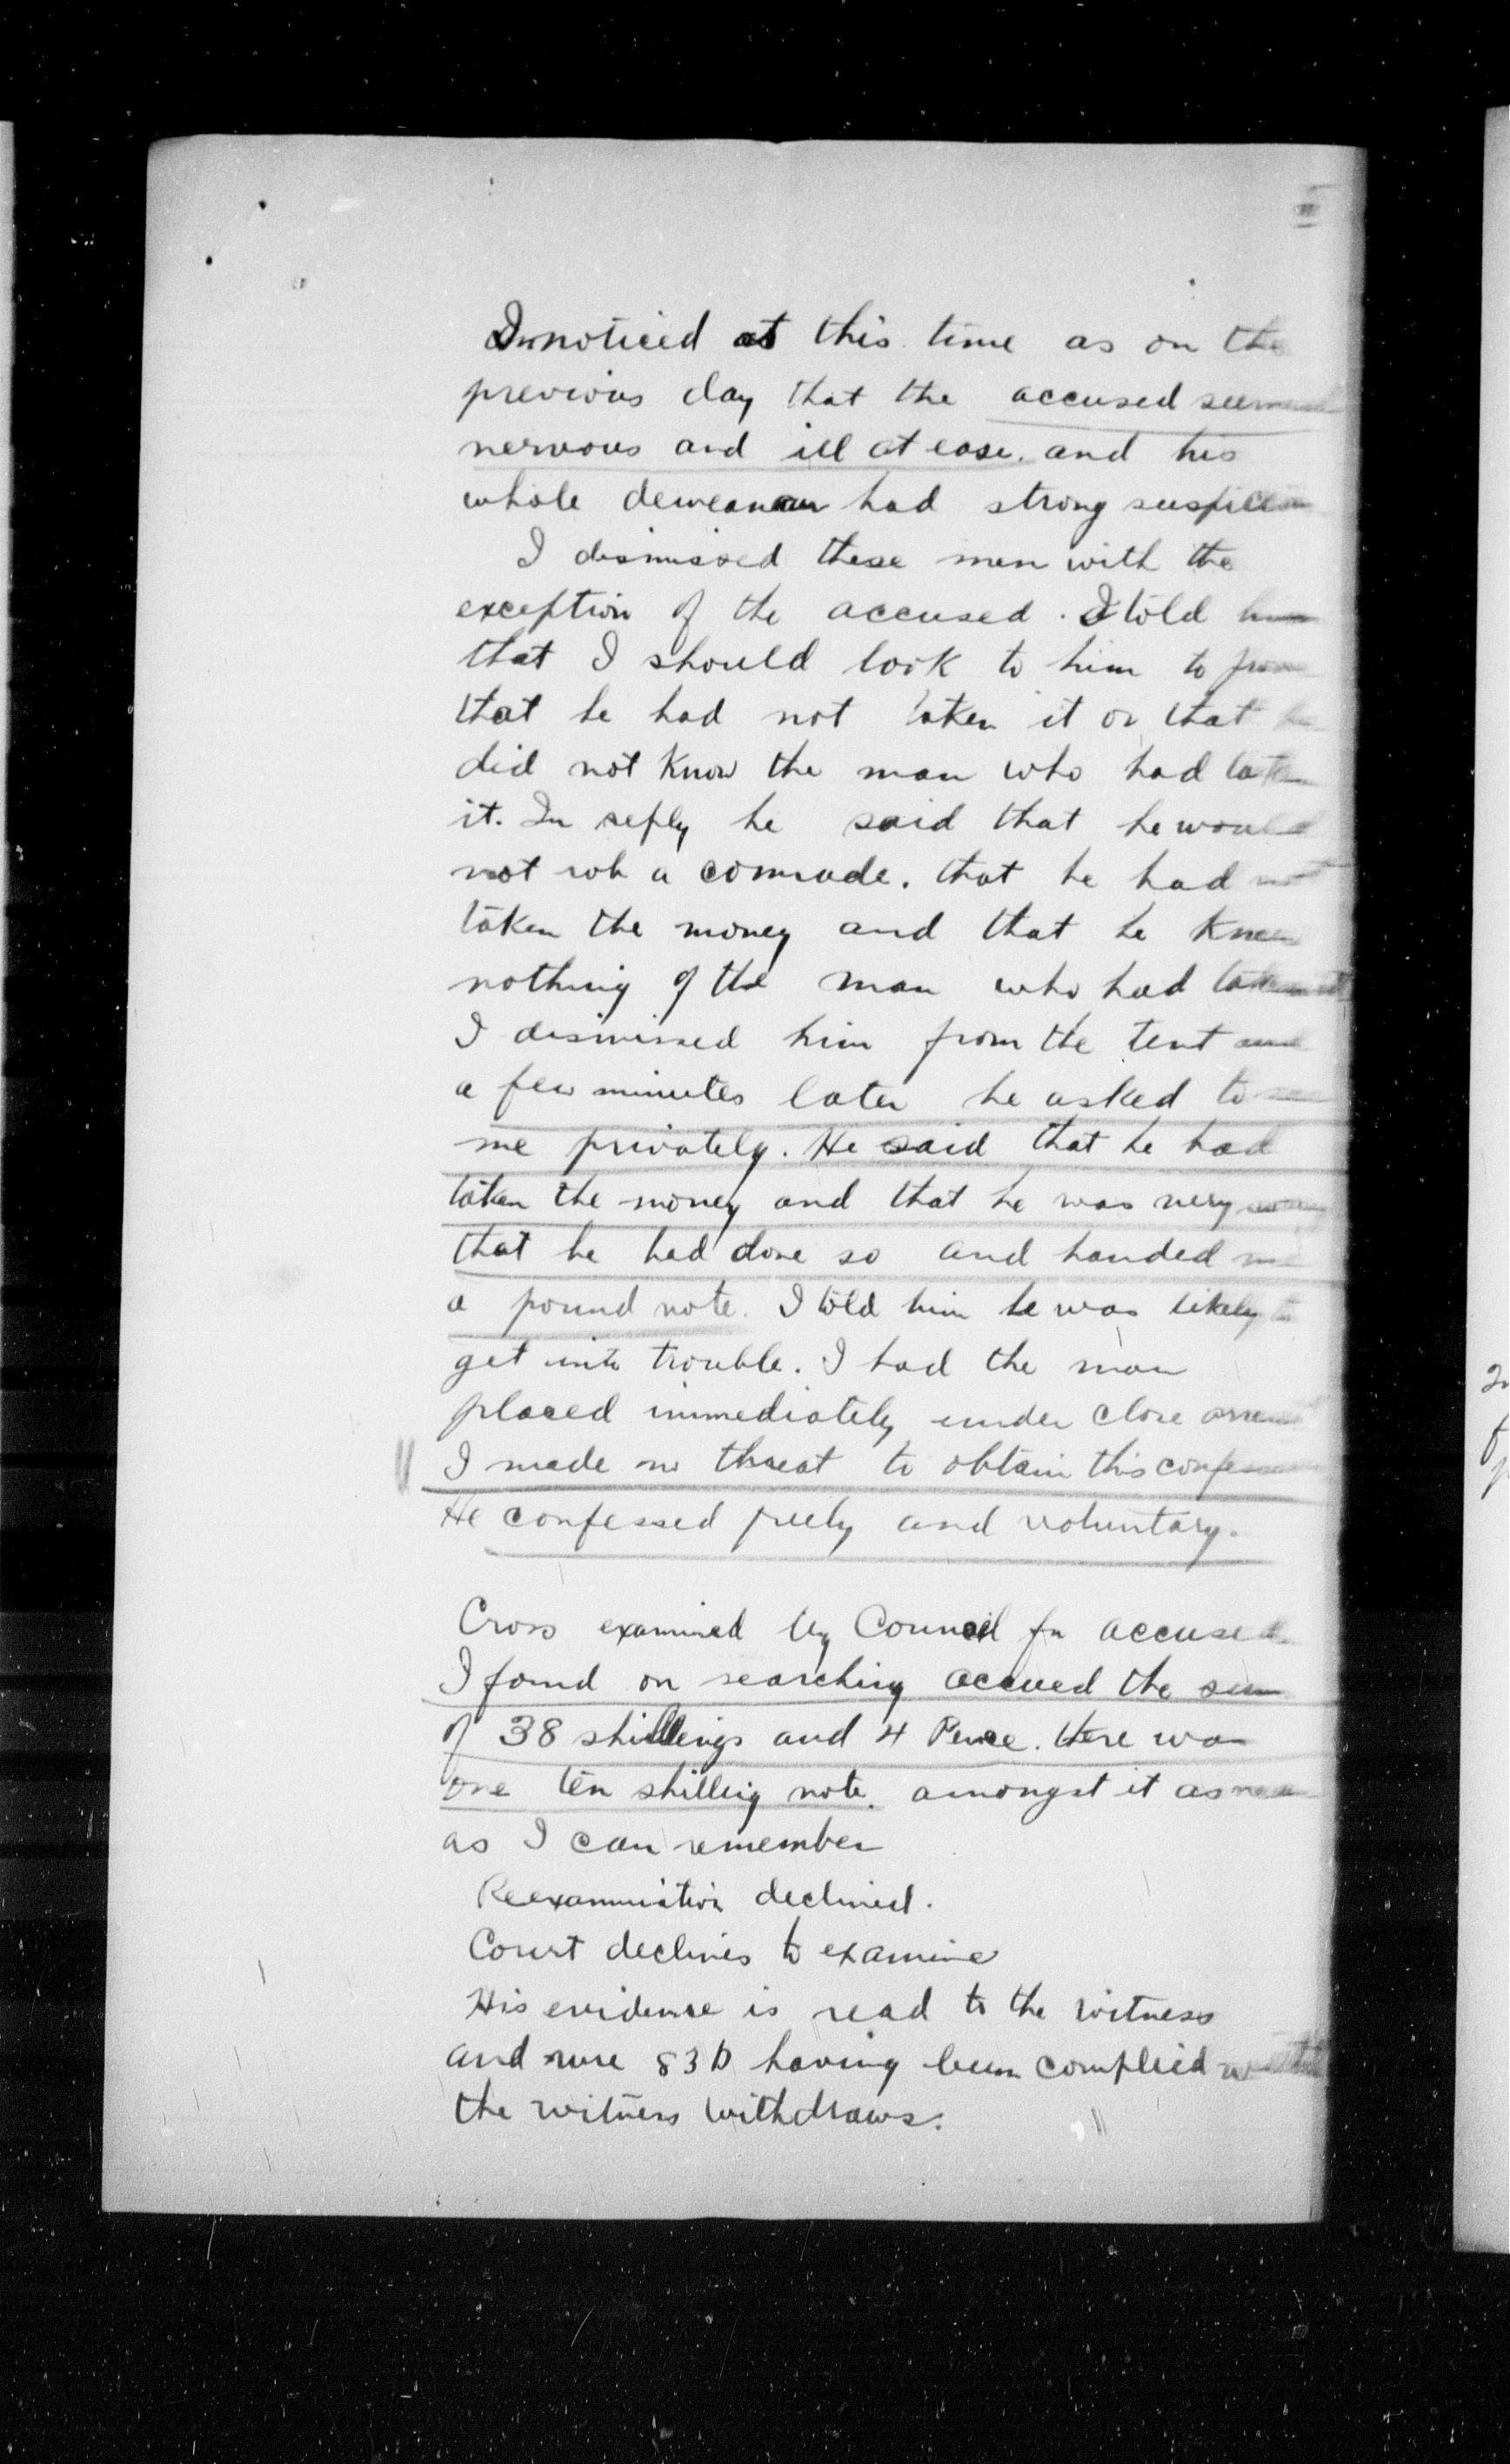 I noticed at this time as on the
previous day that the accused seemed
nervous and ill at ease. and his
whole demeanour had strong suspicion
I dismissed these men with the
exception of the accused. I told him
that I should look to him to prove
that he had not taken it or that he
did not know the man who had taken
it. In reply he said that he would
not rob a comrade. that he had not
taken the money and that he knew
nothing of the man who had taken it
I dismissed him from the tent and
a few minutes later he asked to see
me privately. He said that he had
taken the money and that he was very sorry
that he had done so and handed me
a pound note. I told him he was likely to
get into trouble. I had the man
placed immediately under close arrest
I made no threat to obtain this confession
He confessed freely and voluntary.
Cross examined by Council for accused
I found on searching accused the sum
of 38 shillings and 4 Pence. there was
one ten shilling note. amongst it as near
as I can remember
Reexamination declined.
Court declines to examine
His evidence is read to the witness
and rule 83 D having been complied with
the witness withdraws.